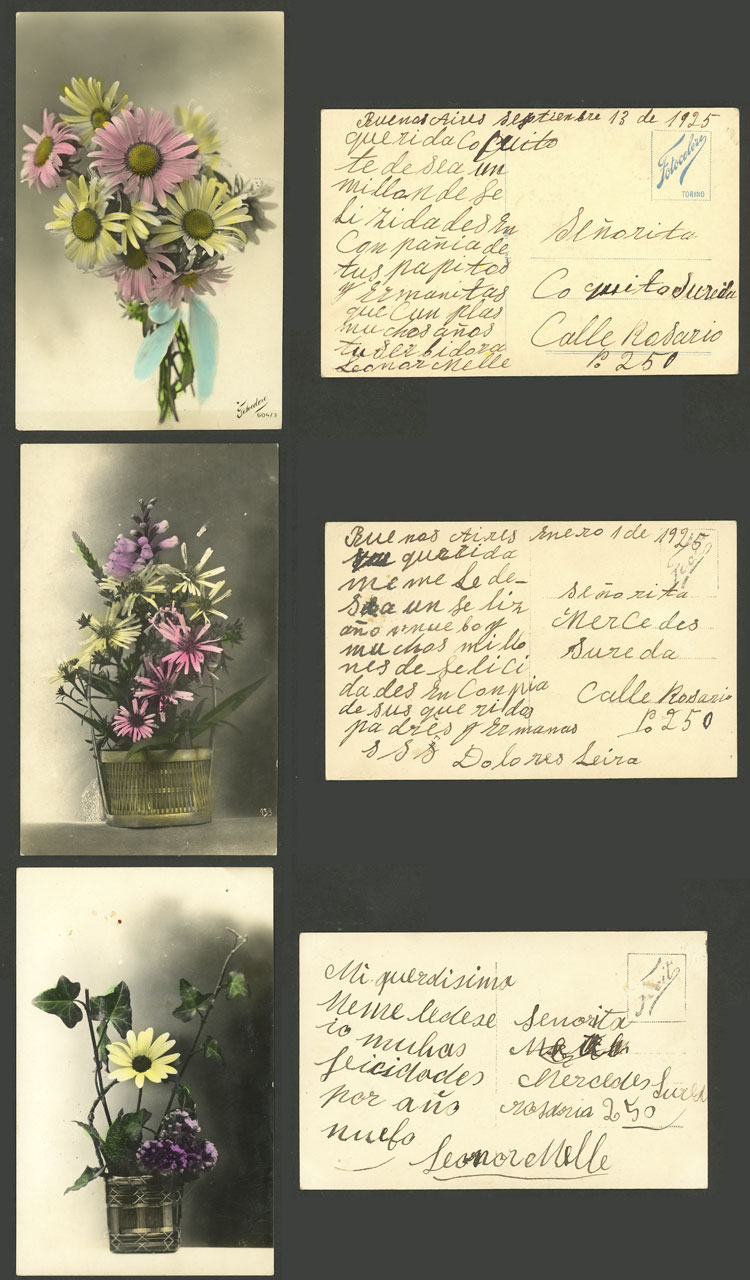 Fotocelere
604/3
Buenos Aires Septiembre 13 de 1925
querida Coquito
te desea un
millon de fe
li zidades En
Conpañia de
tus papitos
y Ermanitas
que Cunplas
muchos años
tu serbidora
Leonor Melle
Fotocelere
TORINO
Señorita
Coquito Sureda
Calle Rosario
No 250
133
Buenos Aires Enero 1 de 1925
querida
meme le de-
sea un feliz
año nuebo y
muchos millo
nes de felici
dades En Conpia
de sus queridos
padres y Ermanas
S S S Dolores Leira
Señorita
Mercedes
Sureda
Calle Rosario
No 250
Mi querdisima
Meme ledese
io muchas
feicidades
por año
nuebo
Leonor Melle
Señorita
Mercedes Sured
rosaria 250